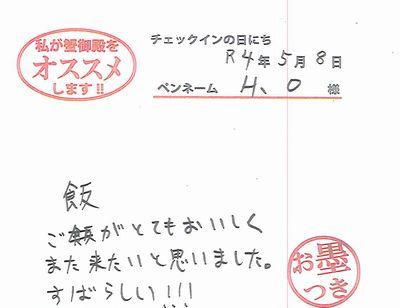 私が蟹御殿を
オススメ
します!!
チェックインの日にち
R4年5月8日
ペンネーム H、O 様
飯
ご飯がとてもおいしく
また来たいと思いました。
すばらしい!!!
お墨
つき